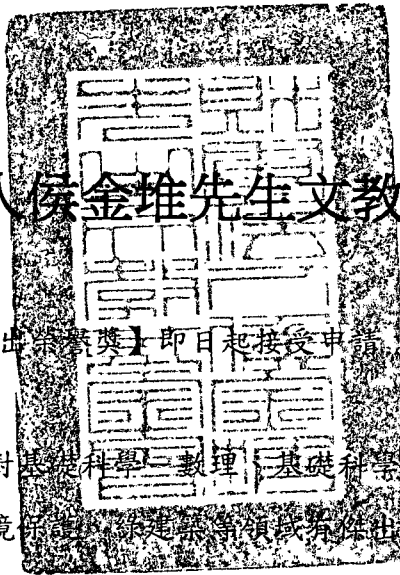 人侯金堆先生文教
出榮譽獎】即日起接受申請
對基礎科學 數理、基礎科學
境保護、綠建築等領域有傑出